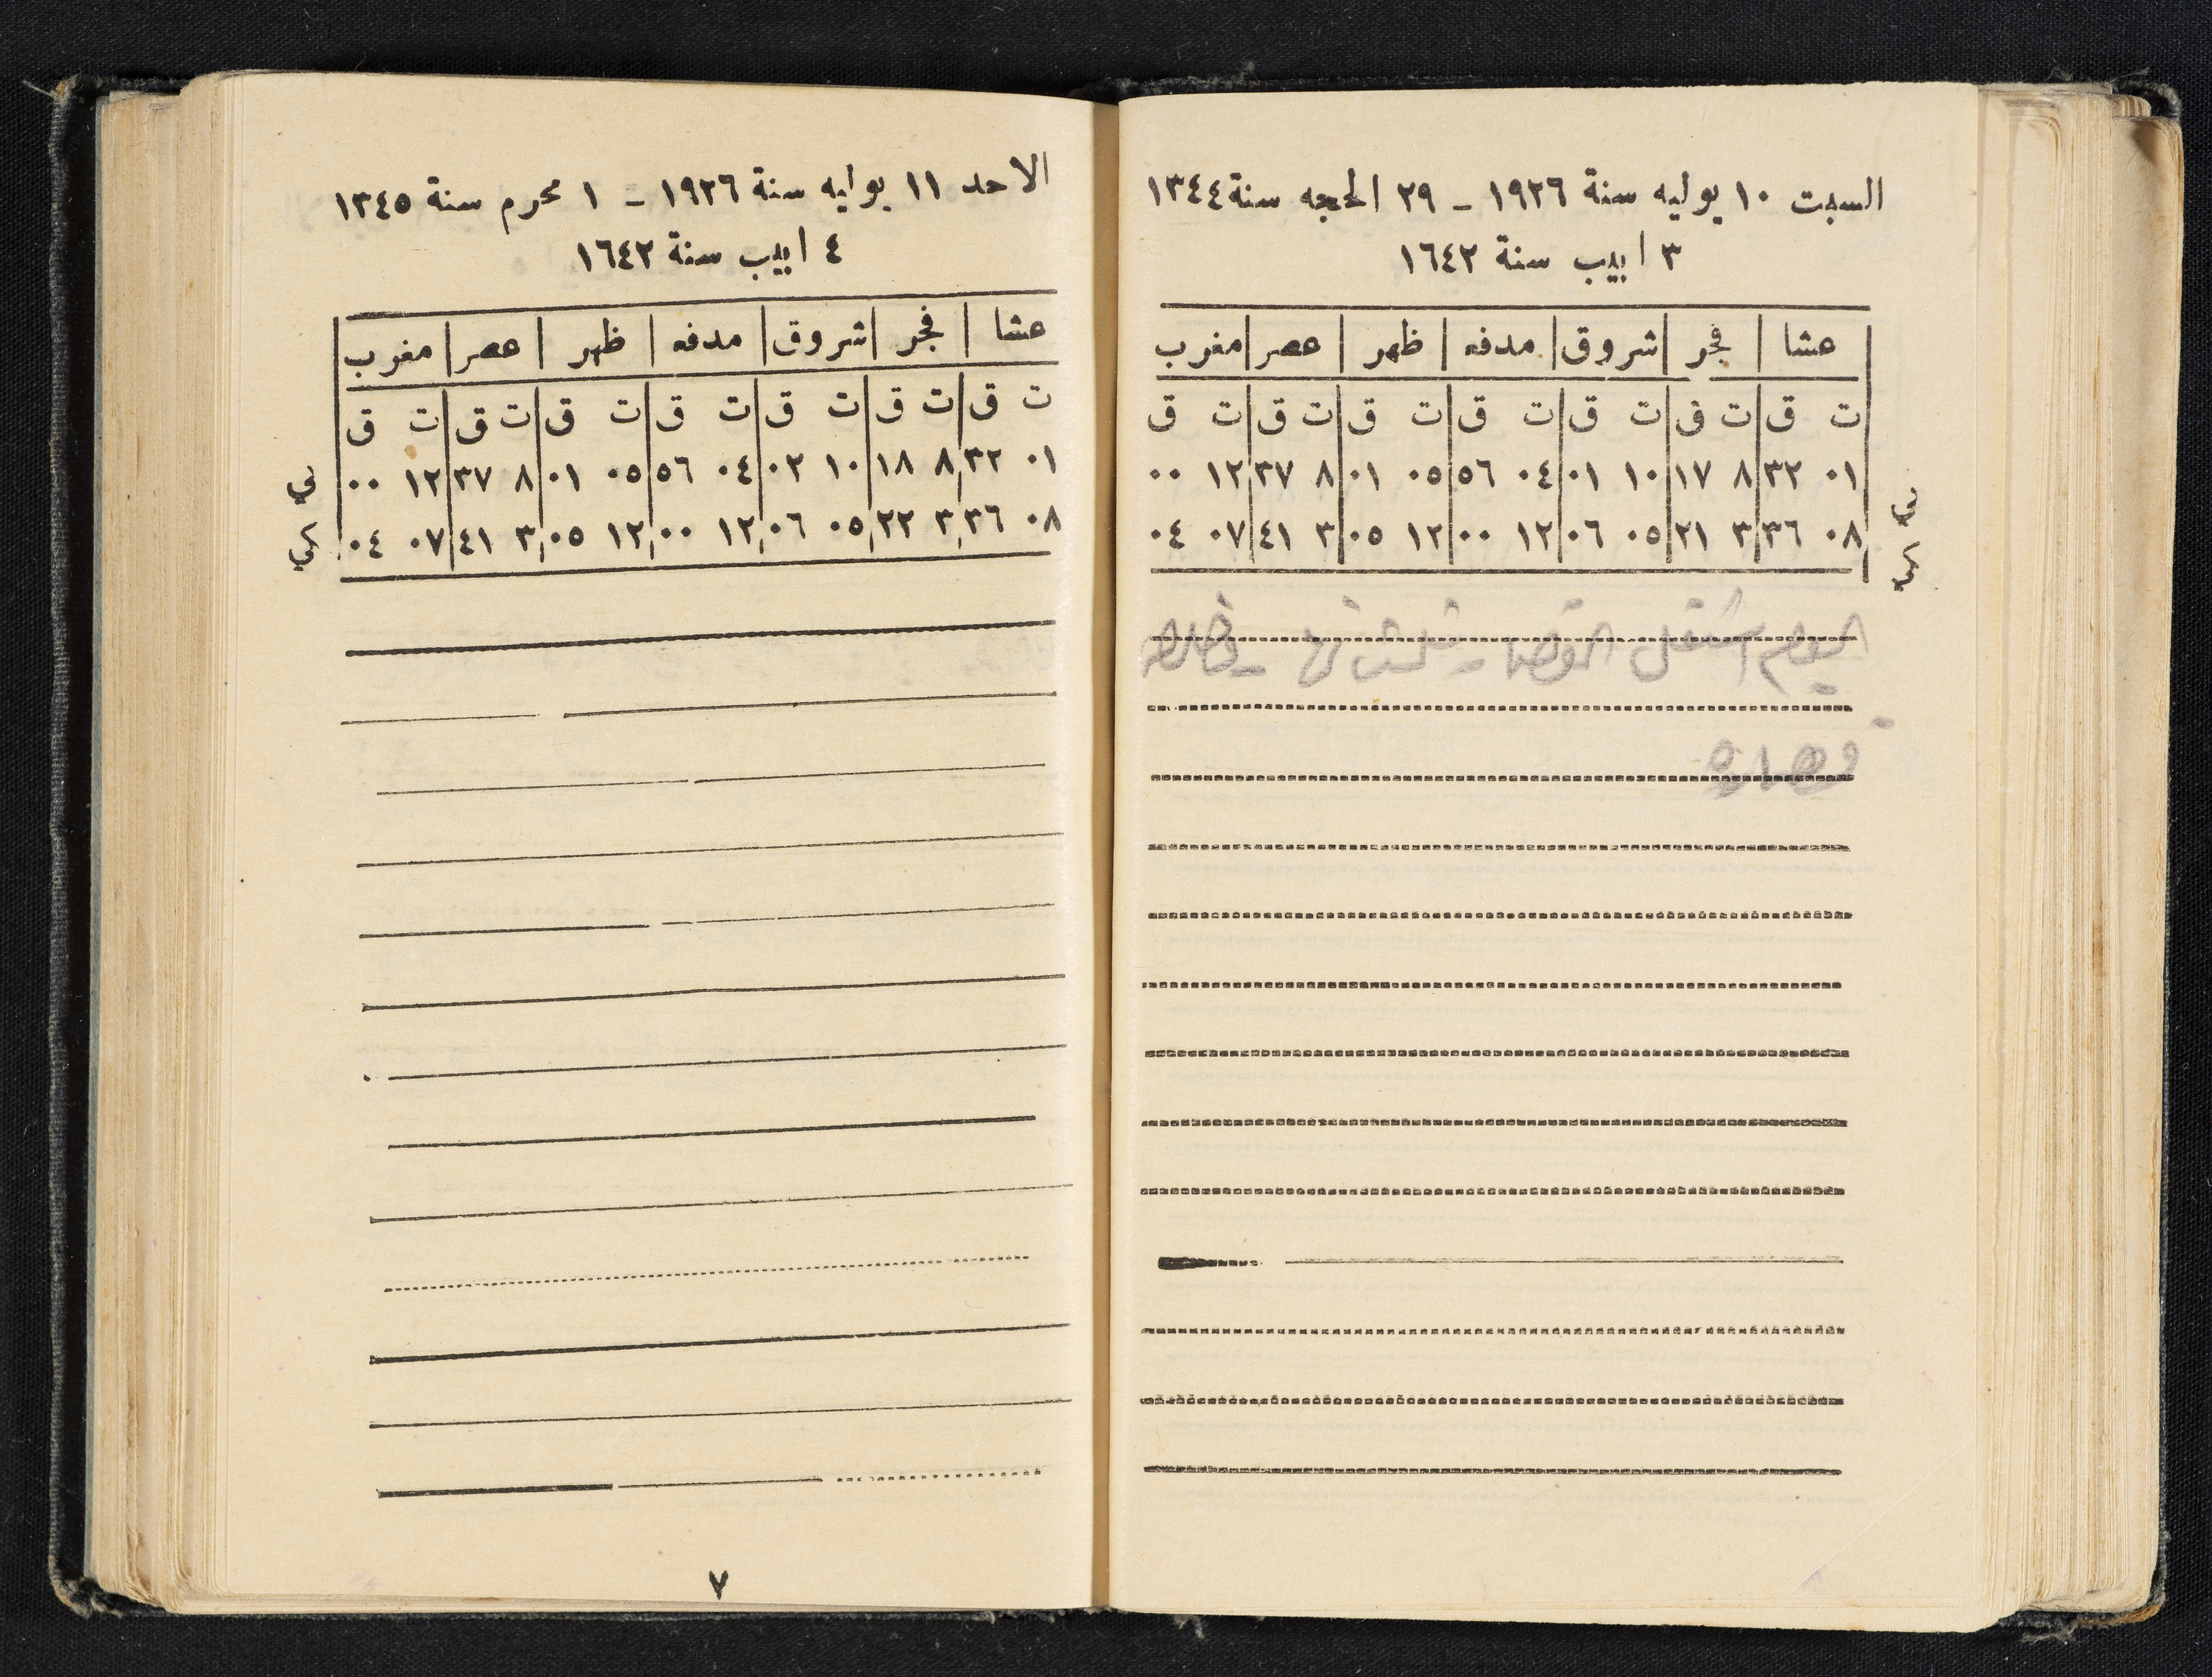 السبت ١٠ يوليه سنة ١٩٢٦ - ٢٩ الحجه سنة ١٣٤٤
٣ ابيب سنة ١٦٤٢
عشا | فجر | شروق | مدفه | ظهر | عصر | مغرب
ت ق | ت ق | ت ق | ت ق | ت ق | ت ق | ت ق
٠١ ٣٢ | ٨ ١٧ | ١٠ ٠١ | ٠٤ ٥٦ | ٠٥ ٠١ | ٨ ٣٧ | ١٢ ٠٠
٠٨ ٣٦ | ٣ ٢١ | ٠٥ ٠٦ | ١٢ ٠٠ | ١٢ ٠٥ | ٣ ٤١ | ٠٧ ٠٤
اليوم
الاحد ١١ يوليه سنة ١٩٢٦ - ١ محرم سنة ١٣٤٥
٤ ابيب سنة ١٦٤٢
عشا | فجر | شروق | مدفه | ظهر | عصر | مغرب
ت ق | ت ق | ت ق | ت ق | ت ق | ت ق | ت ق
٠١ ٣٢ | ٨ ١٨ | ١٠ ٠٢ | ٠٤ ٥٦ | ٠٥ ٠١ | ٨ ٣٧ | ١٢ ٠٠
٠٨ ٣٦ | ٣ ٢٢ | ٠٥ ٠٦ | ١٢ ٠٠ | ١٢ ٠٥ | ٣ ٤١ | ٠٧ ٠٤
٧